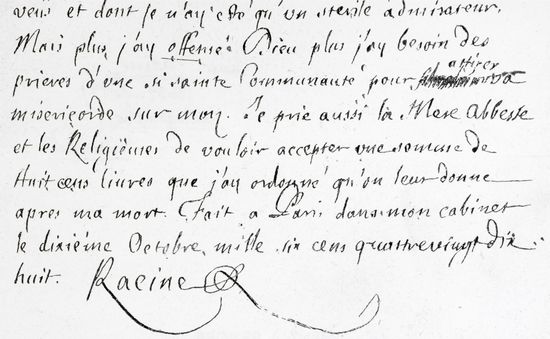 veus et dont je n'ay esté qu'un sterile admirateur.
Mais plus j'ay offensé Dieu plus j'ay besoin des
prieres d'une si sainte Communauté pour attirer sa
misericorde sur moy. Je prie aussi la Mere Abbesse
et les Religieuses de vouloir accepter une somme de
huit cens livres que j'ay ordonné qu'on leur donne
apres ma mort. Fait a Paris dans mon cabinet
le dixiéme Octobre mille six cens quattre vingt dix
huit. Racine